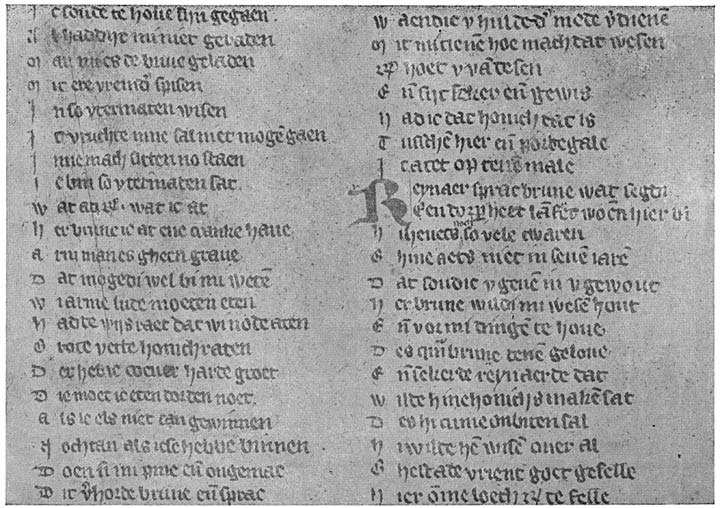 I c soude te houe sijn gegaen.
H addijt mi niet gebaden
M aer mi es de buuc geladen
M it ere vremd' spisen
I n so vtermaten wisen
I c vruchte inne sal niet mogē gaen
I nne mach sitten no staen
I c bin so vtermaten sat.
W at at · wat ic at
H er brune ic at ene cranke haue
A rm man es gheen graue
D at mogedi wel bi mi wetē
W i arme lude moeten eten
H adde wijs raet dat wi node aten
G rote versce honichraten
D er hebic coeuer harde groet
D ie moet ic eten dor den noet.
A ls ic els niet can gewinnen
N ochtan als icse hebbe binnen
D oen si mi pine eñ ongemac
D it v'horde brune eñ sprac
W aendi v hulde mede v'dienē
M it mi eenē hoe mach dat wesen
hoet v vā desen
E ñ sijt seker eñ gewis
H ad ic dat honich dat is
T usschē hier eñ porbegale
I c atet op tenē male
R eynaer sprac brune wat segdi
E en dorp' heet lāfert woēt hier bi
H i heuets so vele twaren
G hine aets niet in seuē iarē
D at soudic v geuen in v gewout
H er brune wildi mi wesē hout
E ñ vor mi dingē te houe
D es quā brune tenē geloue
E ñ sekerde reynaerde dat
W ilde hine honichs makē sat
D es hi cume onbiten sal
H i wilde hē wisē ouer al
G hestade vrient goet geselle
H ier ōme loech te felle